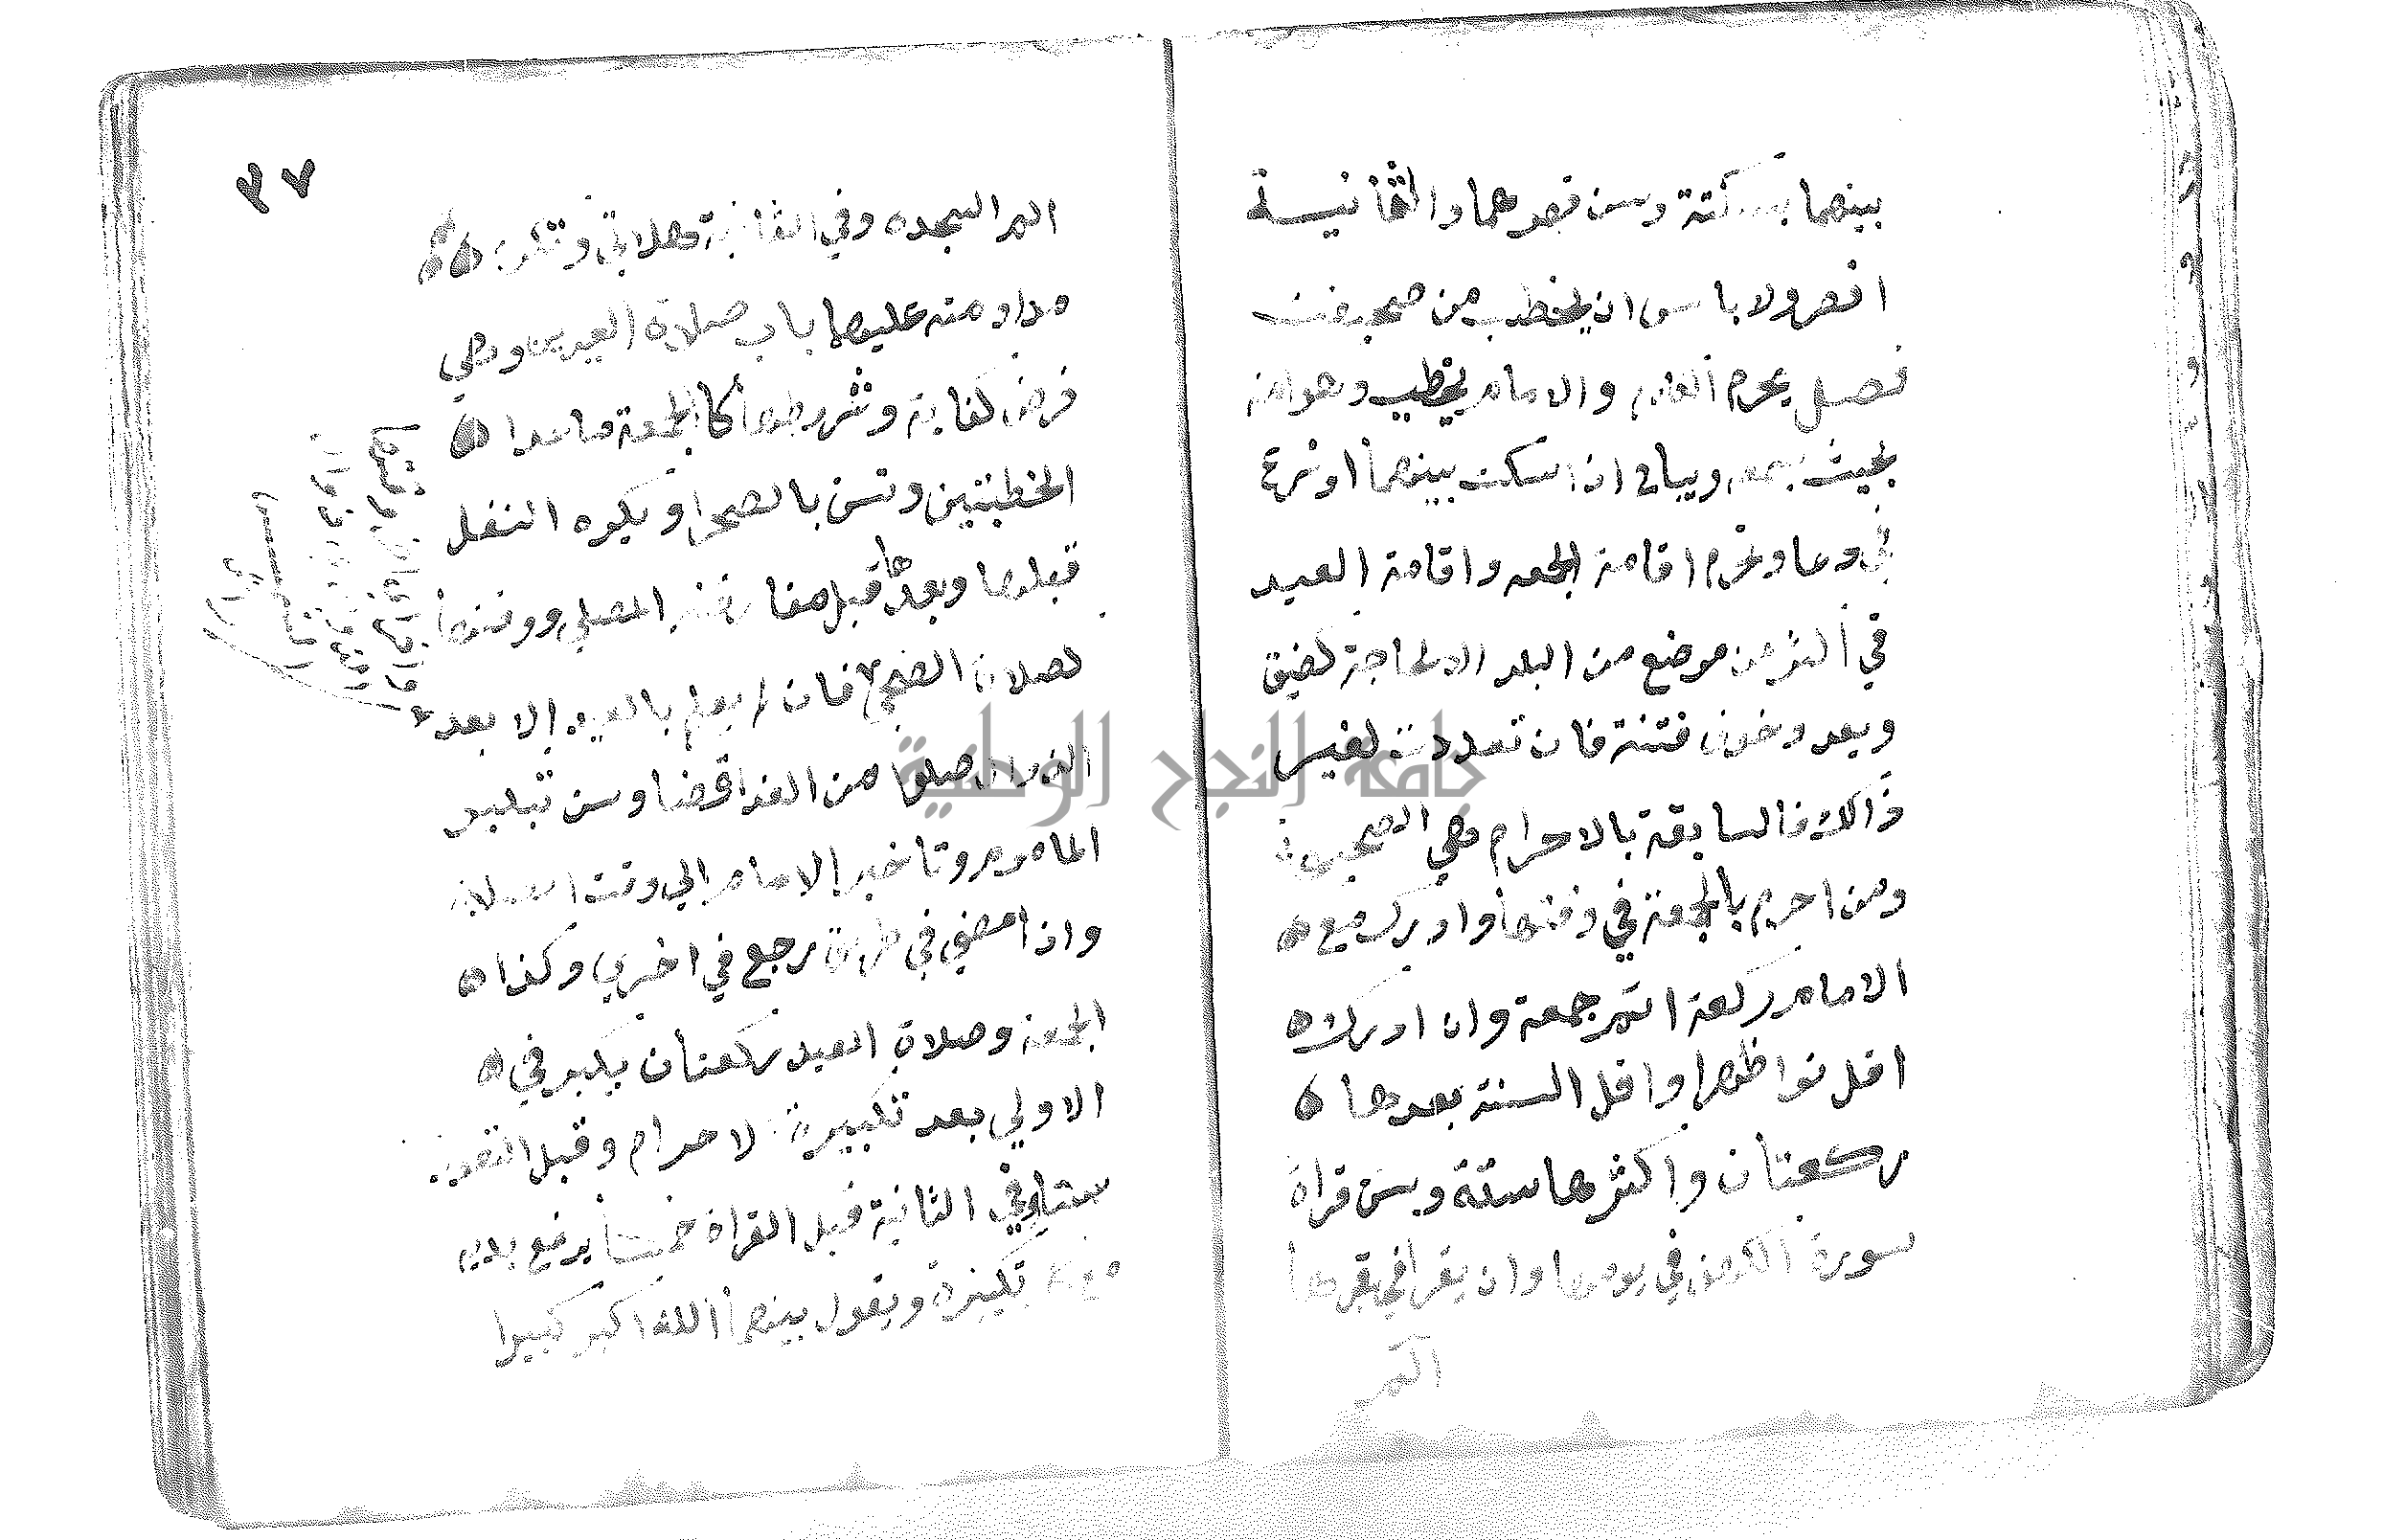 بينهما بسكتة وسن قصرهما والثانية
اقصر ولا باس ان يخطب من صحيفة
فصل يحرم الكلام والامام يخطب وهو منه
بحيث يسمعه ويباح اذا سكت بينهما او شرع
في دعا وتحرم اقامة الجمعه واقامة العيد
في اكثر من موضع من البلد الا لحاجة كضيق
وبعد وخوف فتنة فان تعددت لغير
ذالك فالسابقة بالاحرام هي الصحيحة
ومن احرم بالجمعة في وقتها وادرك مع
الامام ركعة اتم جمعة وان ادرك
اقل نوا ظهرا واقل السنة بعدها
ركعتان واكثرها ستة ويسن قراة
سورة الكهف في يومها وان يقرا في فجرها
الم
٣٧
الم السجده وفي الثانية هل اتى وتكره
مداومته عليهما باب صلاة العيدين وهي
فرض كفاية وشروطها كالجمعة ما عدا
الخطبتين وتسن بالصحرا ويكره النفل
قبلها وبعدها قبل مفارقة المصلي ووقتها
كصلاة الضحى فان لم يعلم بالعيد الا بعد
الزوال صلوا من الغد اقضا وسن تبكير
الماموم وتاخير الامام الي وقت الصلاة
واذا مضى في طريق رجع في اخري وكذا
الجمعة وصلاة العيد ركعتان يكبر في
الاولي بعد تكبيرة الاحرام وقبل التعوذ
ستا وفي الثانية قبل القراة خمسا يرفع يديه
مع كل تكبيرة ويقول بينهما الله اكبر كبيرا
جامعة النجاح الوطنية